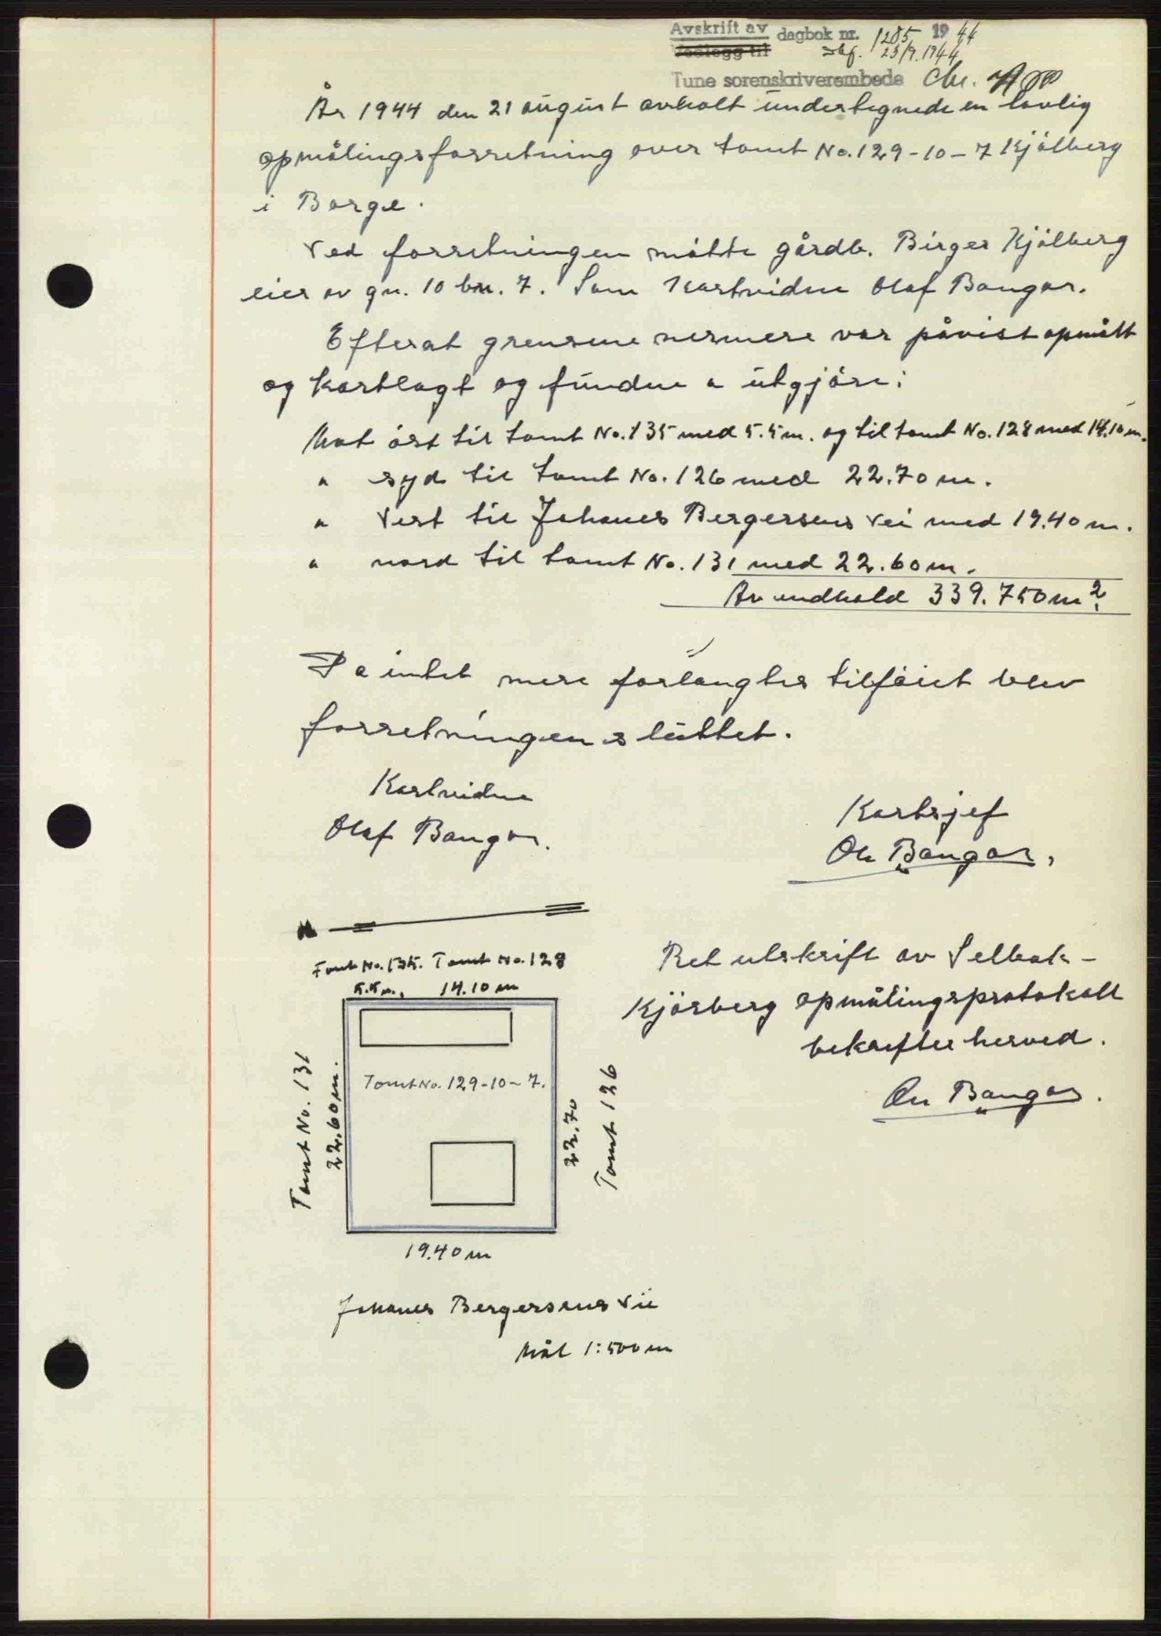 Avskrift av dagbok nr. 1285 1944
Vedlegg til 23/9.1944
Tune sorenskriverembede
År 1944 den 21 august avholt undertegnede en lovlig
opmålingsforretning over tomt No. 129-10-7 Kjölberg
i Borge.
Ved forretningen mötte gårdb. Birger Kjölberg
eier av gn. 10 bn. 7. Som Kartvidne Olaf Bangar.
Efterat grensene nermere var påvist opmålt
og kartlagt og fundne a utgjöre:
Mot öst til tomt No. 135 med 5.5 m. og til tomt No. 128 med 14.10 m.
" syd til tomt No. 126 med 22.70 m.
" Vest til Johanes Bergersens vei med 19.40 m.
" nord til tomt No. 131 med 22.60 m.
Av indhold 339.750 m².
Da intet mere forlangtes tilföiet blev
forretningen sluttet.
Kartvidne
Olaf Bangar.
Kartsjef
Ole Bangar.
Tomt No. 135. Tomt No. 128
5.5 m. 14.10 m
Tomt No. 131
22.60 m.
Tomt No. 129-10-7.
22.70
Tomt 126
19.40 m
Johanes Bergersens vei
Mål 1:500 m
Ret utskrift av Selbak-
Kjörberg opmålingsprotokoll
bekreftes herved.
Ole Bangar.